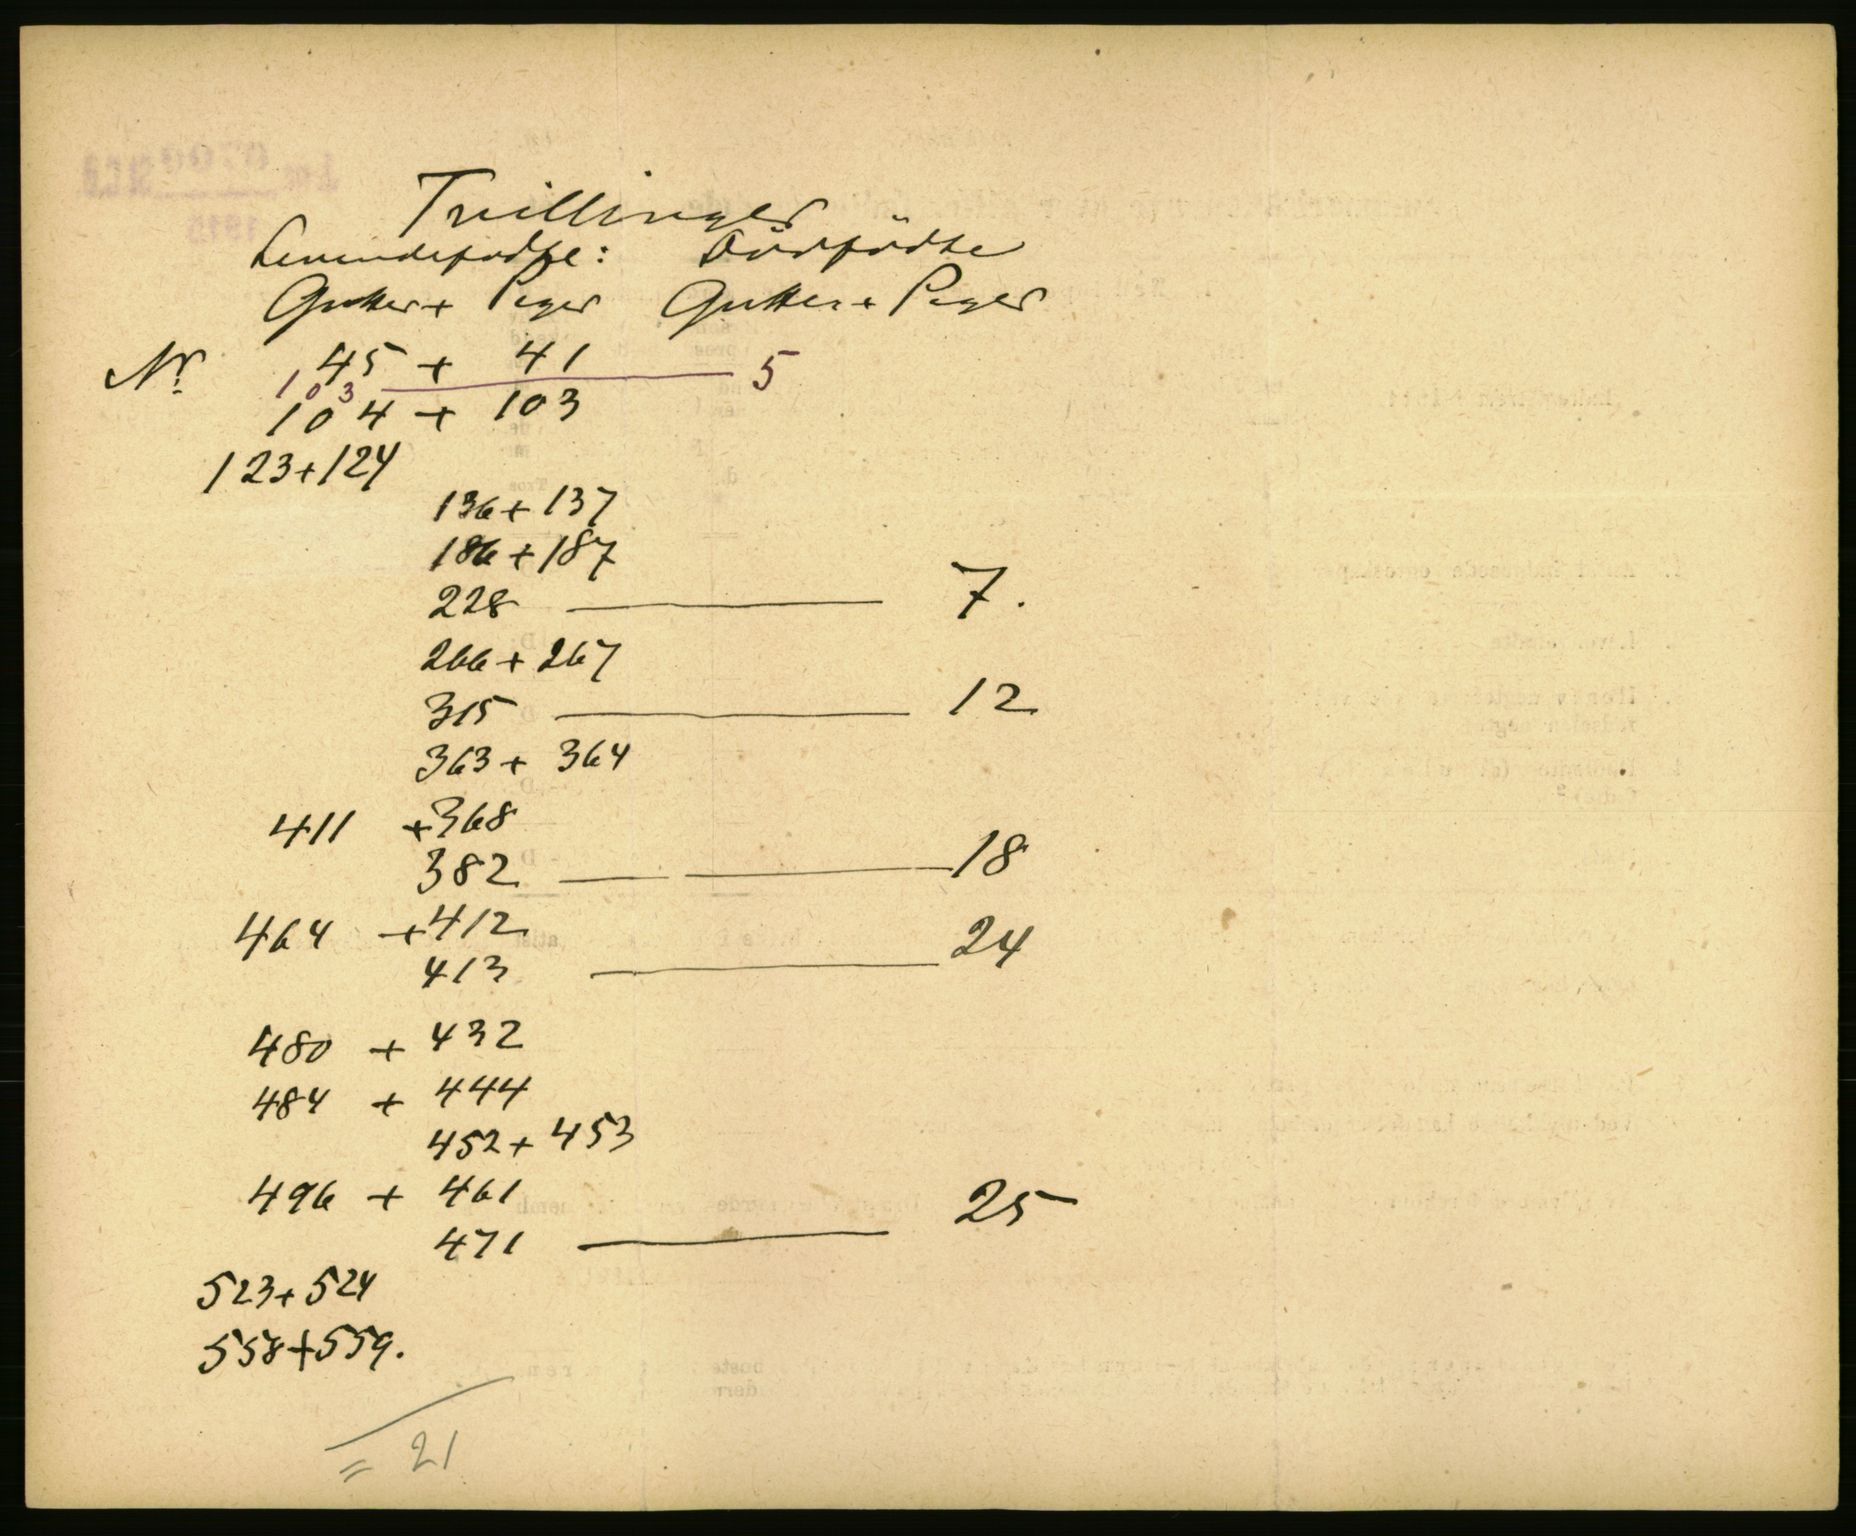 Tvillinger
Levendefødte: Dödfödte
Gutter + Piger Gutter + Piger
Nr. 45 + 41
103 5
104 + 103
123+124
136+137
186+187
228 7.
266+267
315 12
363+ 364
411 +368
382 18
464 +412
413 24
480 + 432
484 + 444
452+453
496 + 461
471 25
523+524
558+559.
= 21